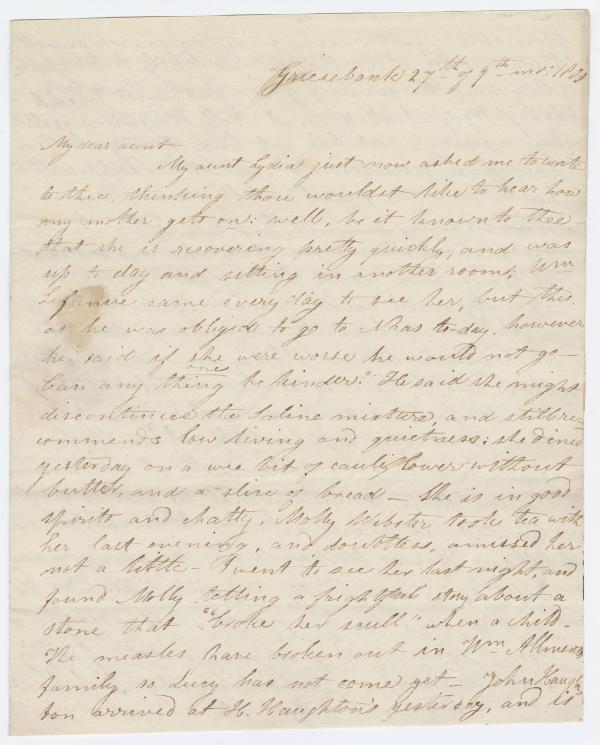 Griesebank 27th of 9th mo: 1830
My dear aunt
My aunt Lydia just now asked me to write
to thee, thinking thou wouldst like to hear how
my mother gets on: well, be it known to thee,
that she is recovering pretty quickly, and was
up to day and sitting in another room; Wm
Lefanue came every day to see her, but this,
as he was obliged to go to Nhas to-day, however
he said if she were worse he would not go—
Can any thing one be kinder? He said she might
discontinue the saline mixture, and still re-
commends low living and quietness: she dined
yesterday on a wee bit of cauliflower without
butter, and a slice of bread — She is in good
spirits and chatty, Molly Webster took tea with
her last evening, and doubtless, amused her
not a little — I went to see her last night, and
found Molly telling a frightful story about a
stone that "broke her scull" when a child.
The measles have broken out in Wm
family, so Lucy has not come yet — John Haugh-
ton arrived at H. Haughton's yesterday, and is